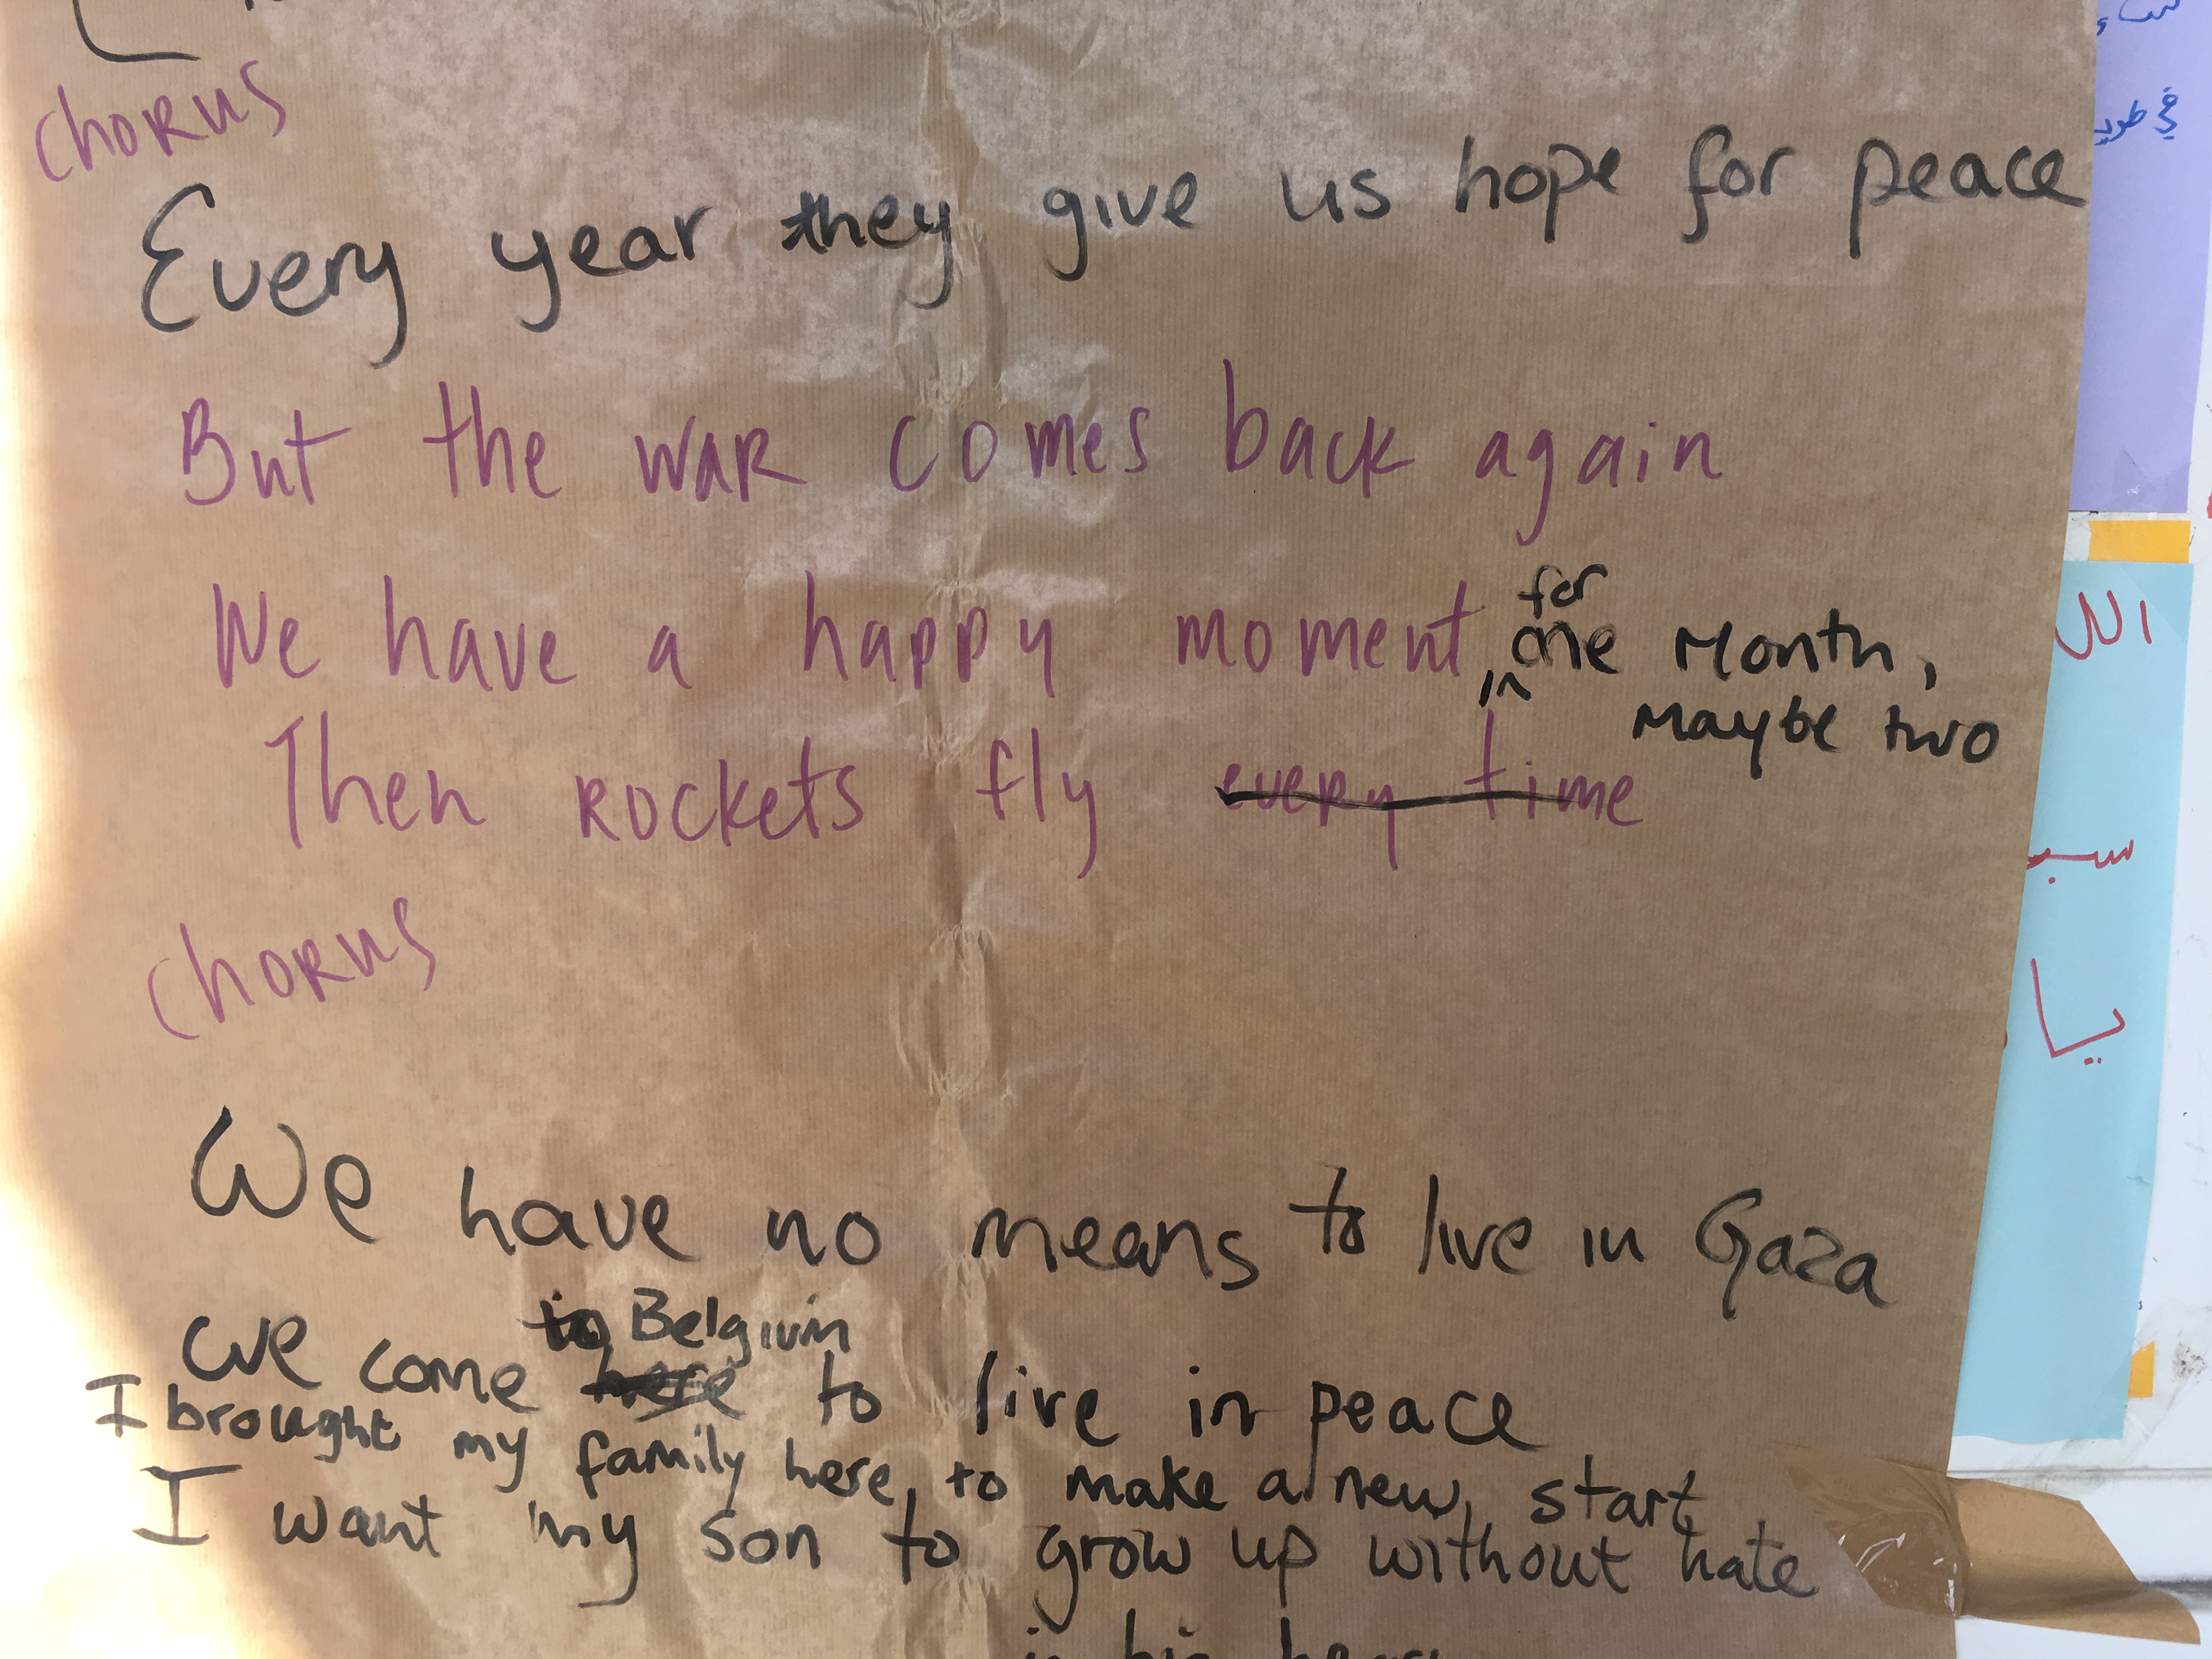 Chorus
Every year they give us hope for peace
But the war comes back again
We have a happy moment, for one Month,
in
Maybe two
Then rockets fly every time
Chorus
We have no means to live in Gaza
in Belgium
We come here to live in peace
I brought my family here, to make a new start
I want my son to grow up without hate
in his
في
سبـ
يا